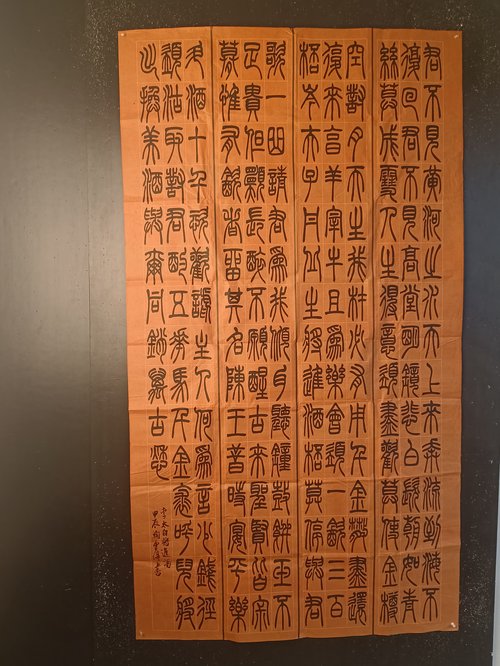 君不見黃河之水天上來奔流到海不
復回君不見高堂明鏡悲白髮朝如青
絲暮成雪人生得意須盡歡莫使金樽
空對月天生我材必有用千金散盡還
復來烹羊宰牛且為樂會須一飲三百
杯岑夫子丹丘生將進酒杯莫停與君
歌一曲請君為我傾耳聽鐘鼓饌玉不
足貴但願長醉不願醒古來聖賢皆寂
寞惟有飲者留其名陳王昔時宴平樂
斗酒十千恣歡謔主人何為言少錢徑
須沽取對君酌五花馬千金裘呼兒將
出換美酒與爾同銷萬古愁
李太白將進酒
甲辰書